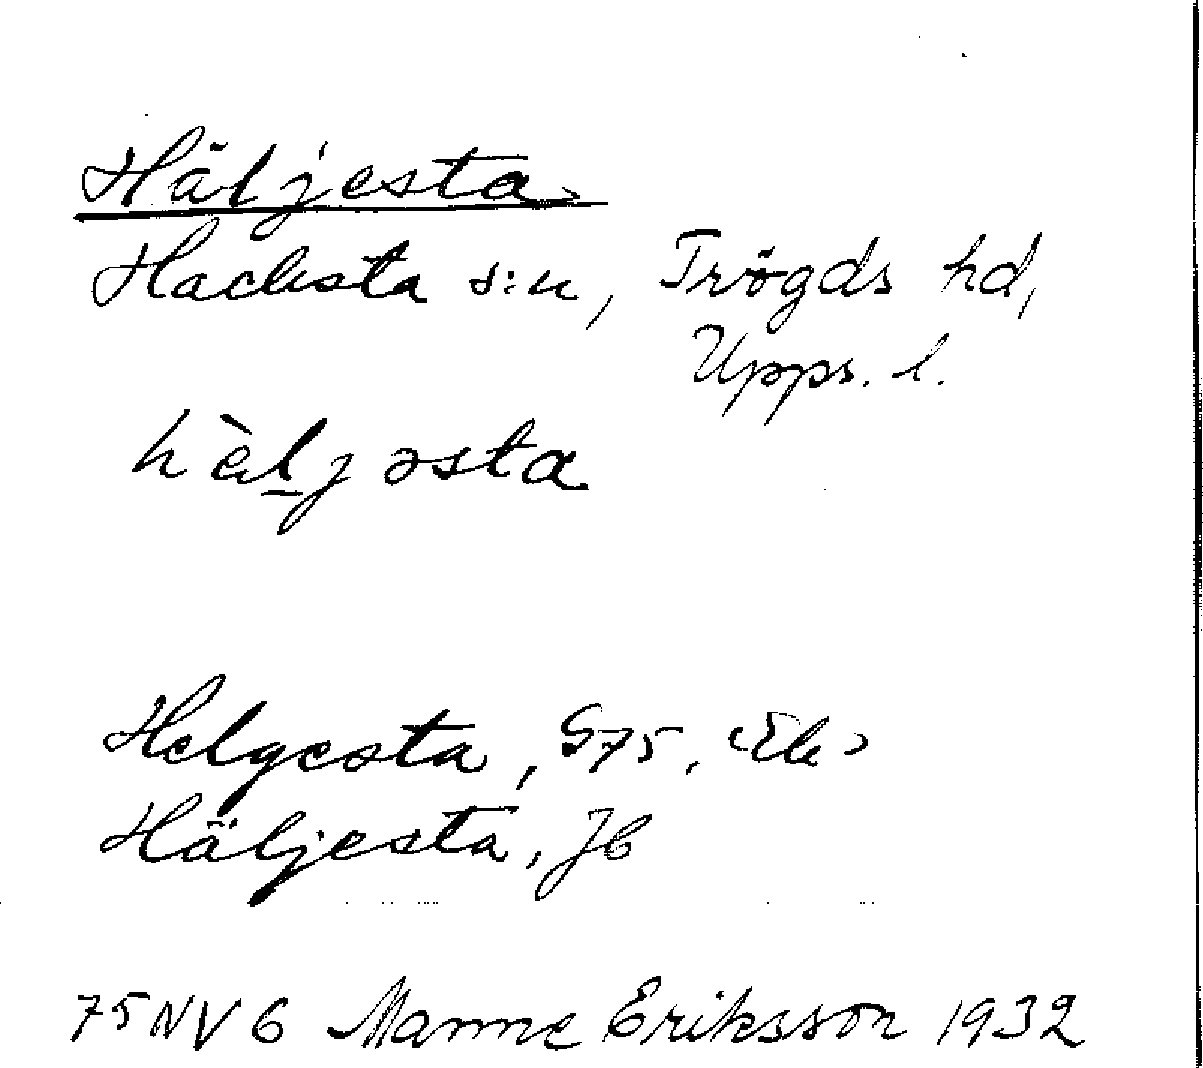 Häljesta
Hacksta s:n, Trögds hd,
Upps. l.
hàl̠jəsta
Helgesta, G75, (Ek)
Häljesta, Jb
75NV6 Manne Eriksson 1932